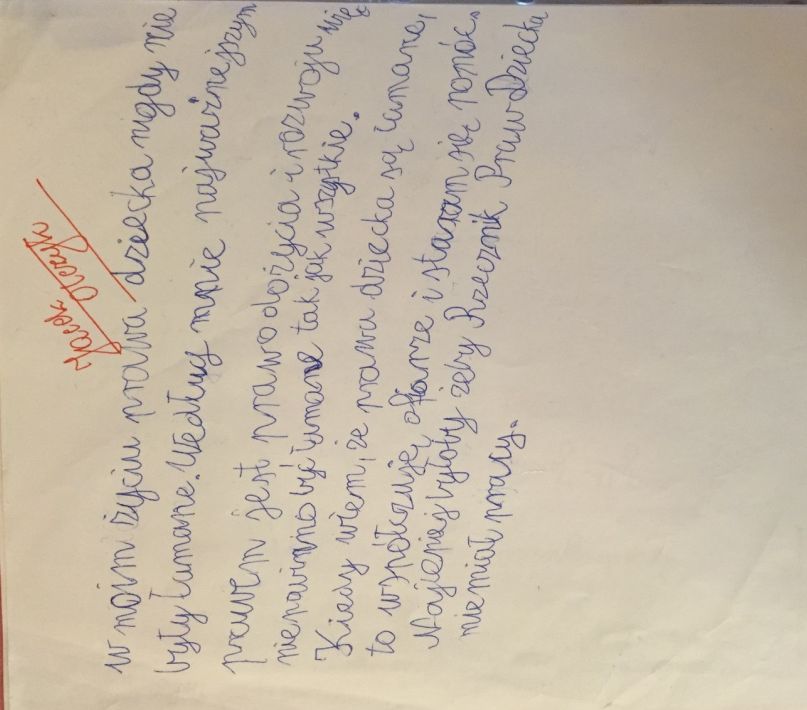 Jacek
W moim życiu prawa dziecka nigdy nie
były łamane. Według mnie najważniejszym
prawem jest prawo do życia i rozwoju nie
nie powinno być łamane tak jak wszytkie.
Kiedy wiem, że prawa dziecka są łamane,
to współczuję ofiarze i staram się pomóc.
Najlepiej byłoby żeby Rzecznik Praw Dziecka
nie miał pracy.